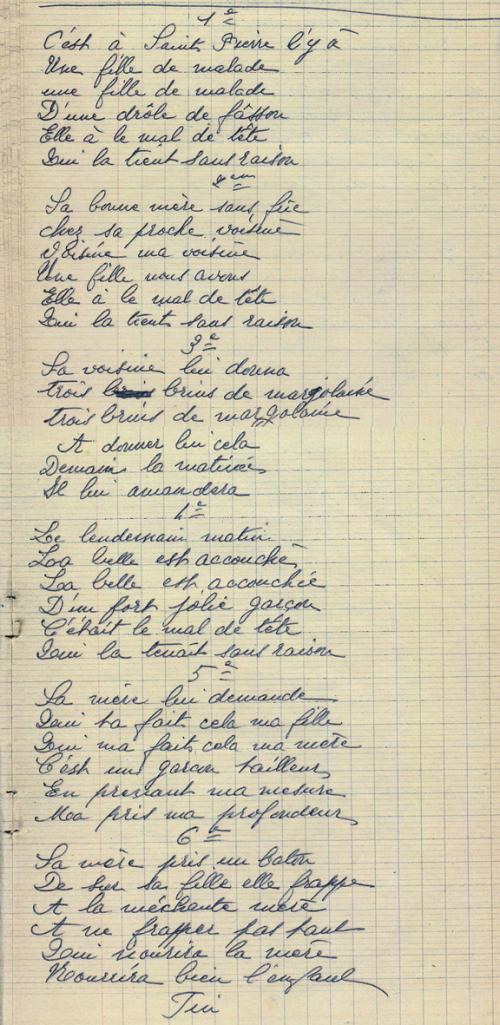 1e
C'est à Saint Pierre l'y à
Une fille de malade
une fille de malade
D'une drôle de fâsson
Elle à le mal de tête
Qui la tient sans raison
2em
Sa bonne mère sans fie
chez sa proche voisine
Voisine ma voisine
Une fille nous avons
Elle à le mal de tête
Qui la tient sans raison
3e
Sa voisine lui donna
trois brins de margolaine
trois brins de margolaine
A donner lui cela
Demain la matinée
Il lui amandera
4e
Le lendemain matin
Laa belle est accouché
La belle est accouchée
D'un fort jolie garçon
C'était le mal de tête
Qui la tenait sans raison
5e
Sa mère lui demande
Qui ta fait cela ma fille
Qui ma fait cela ma mère
C'est un garçon tailleur
En prenant ma mesure
Maa pris ma profondeur
6e
Sa mère pris un baton
De sur sa fille elle frappe
A la méchante mère
A ne frapper pas tant
Qui nourira la mère
Nourrira bien l'enfant
Fin